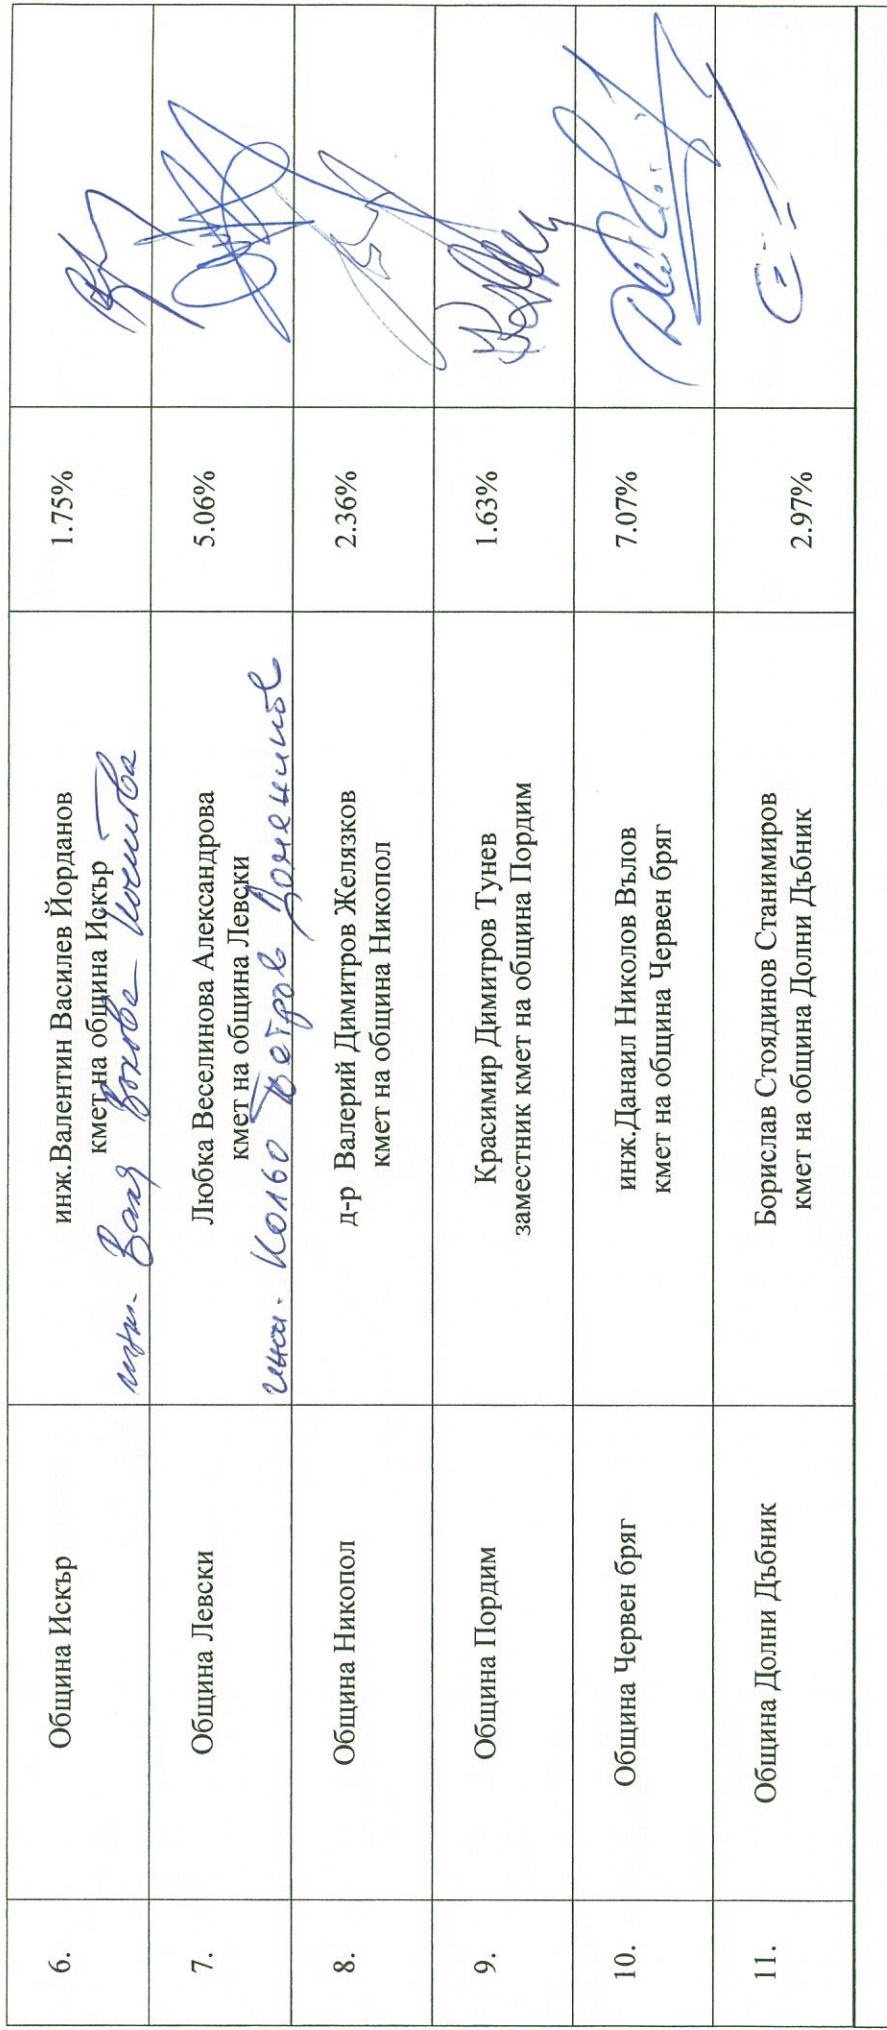 6. Община Искър инж.Валентин Василев Йорданов 1.75%
кмет на община Искър
инж. Ваня
7. Община Левски Любка Веселинова Александрова 5.06%
кмет на община Левски
инж. Кольо Петров
8. Община Никопол д-р Валерий Димитров Желязков 2.36%
кмет на община Никопол
9. Община Пордим Красимир Димитров Тунев 1.63%
заместник кмет на община Пордим
10. Община Червен бряг инж.Данаил Николов Вълов 7.07%
кмет на община Червен бряг
11. Община Долни Дъбник Борислав Стоядинов Станимиров 2.97%
кмет на община Долни Дъбник